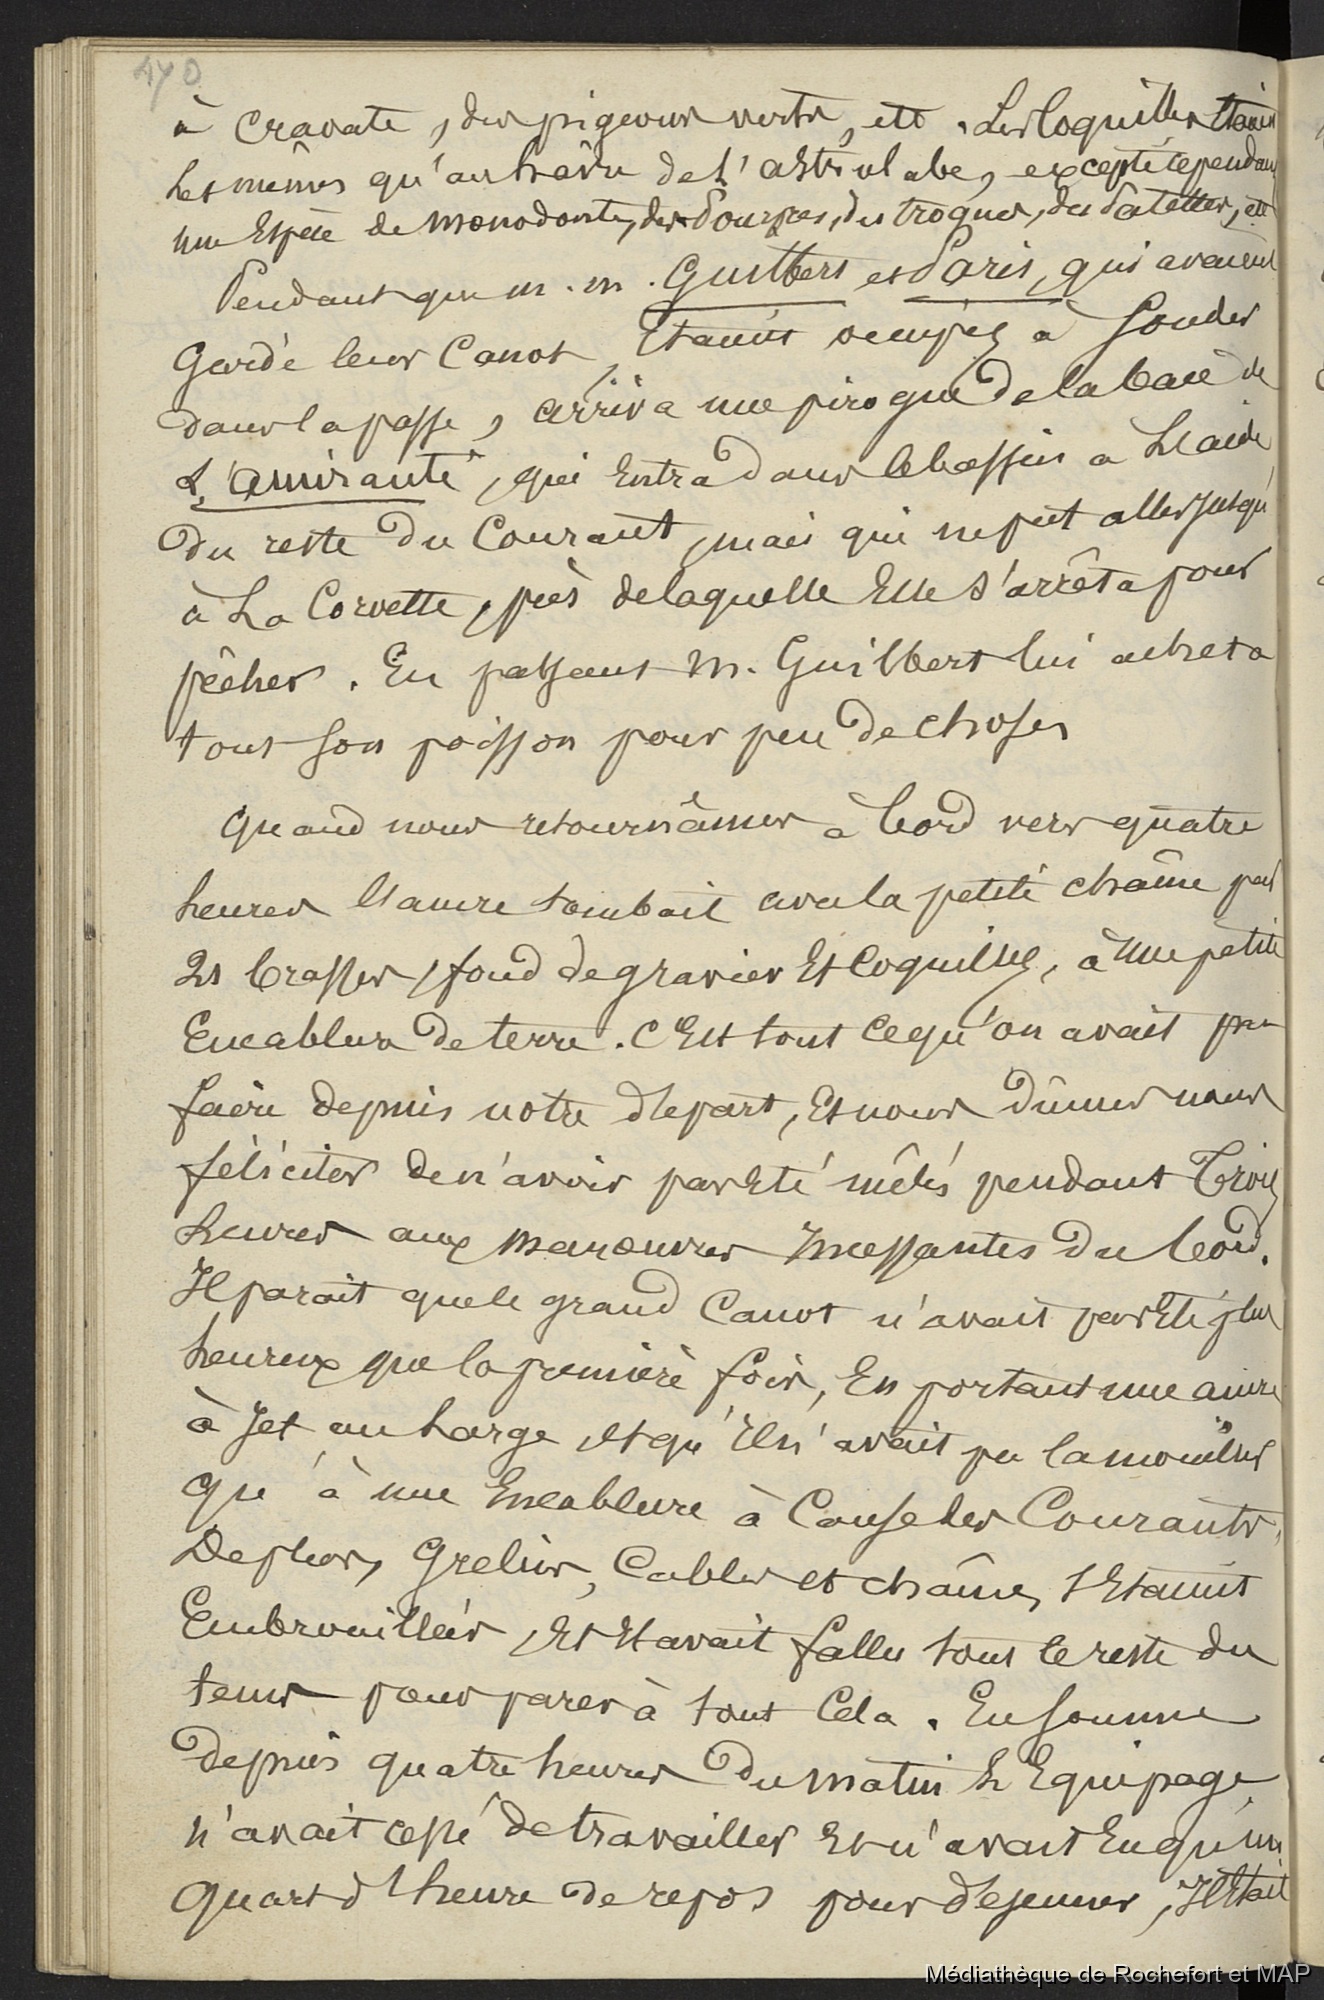 470
à cravate, des pigeons verts, ett. Les Coquilles Etaient
les mêmes qu'au hâvre de l'astrolabe, excepté cependant
une Espèce de monodonte, des Pourpres, des troques, des Patelles, ett
Pendant que m. m. Guilbert et Paris, qui avaient
Gardé leur Canot, Etaient occupés à Sonder
dans la passe, arriva une pirogue de la baie de
L'amirauté, qui Entra dans le bassin à L'aide
du reste du Courant, mais qui ne put aller Jusqu'
à La Corvette, près de laquelle Elle s'arrêta pour
pêcher. En passant M. Guilbert lui acheta
tout son poisson pour peu de choses
Quand nous retournâmes à bord vers quatre
heures l'ancre tombait avec la petite chaîne par
21 brasses, fond de gravier Et Coquilles, à une petite
Encablure de terre. C'Est tout ce qu'on avait pu
faire depuis notre départ, Et nous dûmes nous
féliciter de n'avoir pas Eté mêlés pendant Trois
heures aux manœuvres Incessantes du bord.
Il parait que le grand Canot n'avait pas Eté plus
heureux que la première fois, En portant une ancre
à Jet au Large, Et qu'Il n'avait pu la mouiller
qu'à une Encablure à Cause des Courants,
De plus, Grelins, Cables et chaînes s'Etaient
Embrouillés, Et Il avait fallu tout le reste du
tems pour parer à tout Cela. En Somme
depuis quatre heures du matin L'Equipage
n'avait cessé de travailler Et n'avait Eu qu'un
quart d'heure de repos pour déjeuner, Il Etait
Médiathèque de Rochefort et MAP